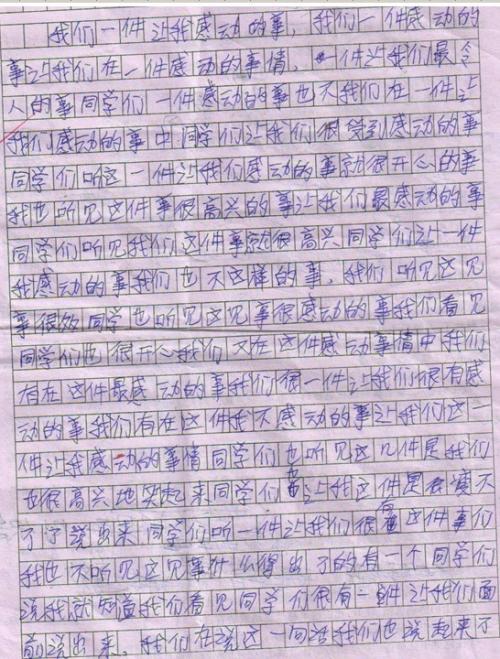 我们一件让我感动的事，我们一件感动的
事让我们在一件感动的事情，一件让我们最令
人的事同学们一件感动的事也不我们在一件让
我们感动的事中同学们让我们很受到感动的事
同学们听这一件让我们感动的事就很开心的事
我也听见这件事很高兴的事让我们最感动的事
同学们听见我们这件事就很高兴同学们让一件
我感动的事我们也不这样的事，我们听见这见
事很多同学也听见这见事很感动的事我们看见
同学们也很开心我们又在这件感动事情中我们
有在这件最感动的事我们很一件让我们很有感
动的事我们有在这件我不感动的事让我们这一
件让我感动的事情同学们也听见这几件是我们
也很高兴地笑起来同学们也让我这件是很瘦不
了了说出来同学们听一件让我们很有这件事们
我也不听见这见事什么得出了的有一个同学们
说我就知道我们看见同学们很有一件让我们面
前说出来。我们在说这一同话我们也说起来了